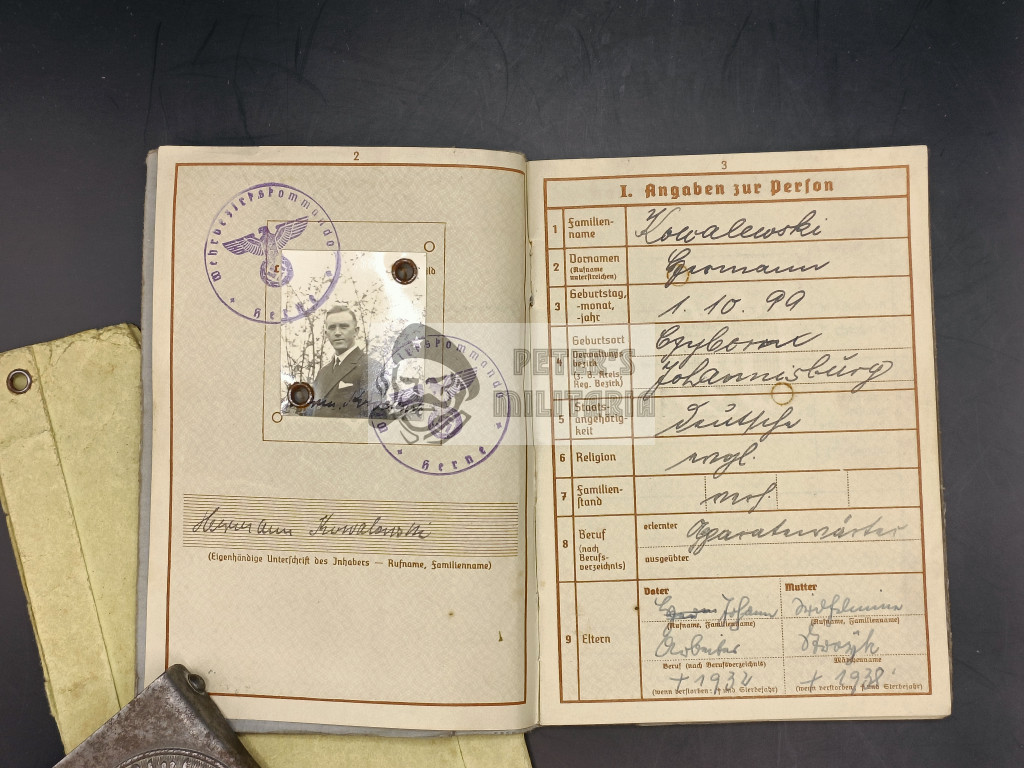 2
Wehrbezirkskommando
Herne
Wehrbezirkskommando
Herne
Hermann Kowalewski
(Eigenhändige Unterschrift des Inhabers — Rufname, Familienname)
3
I. Angaben zur Person
1 Familien-
name
Kowalewski
2 Vornamen
(Rufname
unterstreichen)
Hermann
3 Geburtstag,
-monat,
-jahr
1. 10. 99
4 Geburtsort
Verwaltungs-
bezirk
(z. B. Kreis,
Reg. Bezirk)
Johannisburg
5 Staats-
angehörig-
keit
deutsche
6 Religion
evgl.
7 Familien-
stand
verh.
8 Beruf
(nach
Berufs-
verzeichnis)
erlernter
Aparatewärter
ausgeübter
9 Eltern
Vater
Johann
(Rufname, Familienname)
Arbeiter
Beruf (nach Berufsverzeichnis)
† 1932
(wenn verstorben: † und Sterbejahr)
Mutter
Wilhelmine
(Rufname, Familienname)
Mädchenname
† 1938
(wenn verstorben: † und Sterbejahr)
PETER'S
MILITARIA